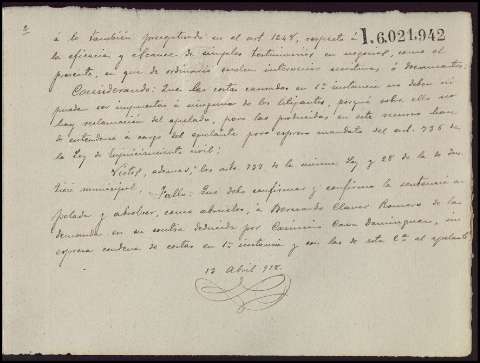 2
á lo también preceptuado en el art. 1248, respecto á
I.6.021.942
la eficacia y alcance de simples testimonios en negocios, como el
presente, en que de ordinario suelen intervenir escrituras, ó documentos;
Considerando: Que las costas causadas en 1ª instancia no deben ni
pueden ser impuestas á ninguno de los litigantes, porque sobre ello no
hay reclamación del apelado, pero las producidas en este recurso han
de entenderse á cargo del apelante por expreso mandato del art. 736 de
la Ley de Enjuiciamiento civil;
Vistos, además, los arts. 737 de la misma Ley y 28 de la de Jus-
ticia municipal; Fallo: Que debo confirmar y confirmo la sentencia a-
pelada y absolver, como absuelvo, á Bernardo Claver Romero de la
demanda en su contra deducida por Casimiro Cava Domínguez, sin
expresa condena de costas en 1ª instancia y con las de esta 2ª al apelante
12 Abril 918.